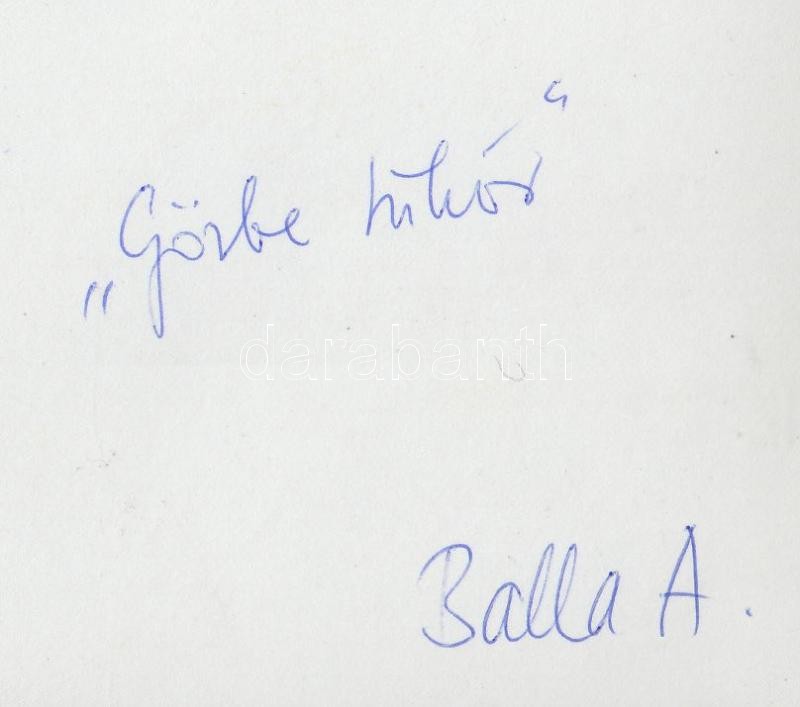 „Görbe tükör"
darabanth
Balla A.